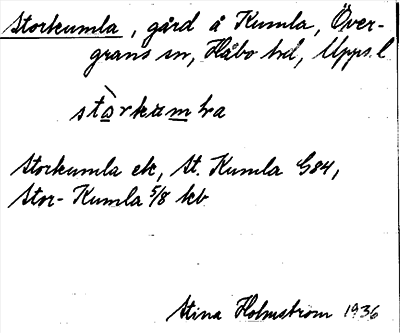 Storkumla, gård å Kumla, Över-
grans sn, Håbo hd, Upps. l
stòrkumla
Storkumla ek, St. Kumla G84,
Stor-Kumla 5/8 kb
Stina Holmström 1936